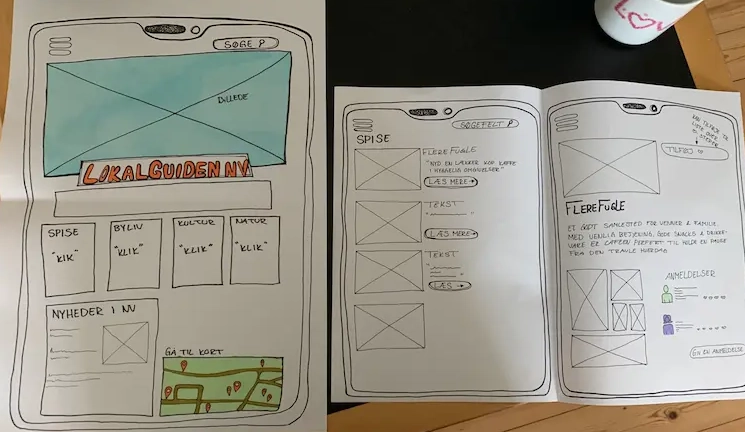 SØGE
BILLEDE
LOKALGUIDEN NV
SPISE
"KLIK"
BYLIV
"KLIK"
KULTUR
"KLIK"
NATUR
"KLIK"
NYHEDER I NV
GÅ TIL KORT
SØGEFELT
SPISE
FLERE FUGLE
"NYD EN LÆKKER KOP KAFFE
I HYGGELIG OMGIVELSER"
LÆS MERE →
TEKST
LÆS MERE →
TEKST
LÆS →
LISTE OVER
TILFØJ
FLERE FUGLE
ET GODT SAMLESTED FOR VENNER & FAMILIE.
MED VENLIG BETJENING, GODE SNACKS & DRIKKE-
VARE ER CAFEEN PERFEKT TIL HOLDE EN PAUSE
FRA DEN TRAVLE HVERDAG
ANMELDELSER
GIV EN ANMELDELSE